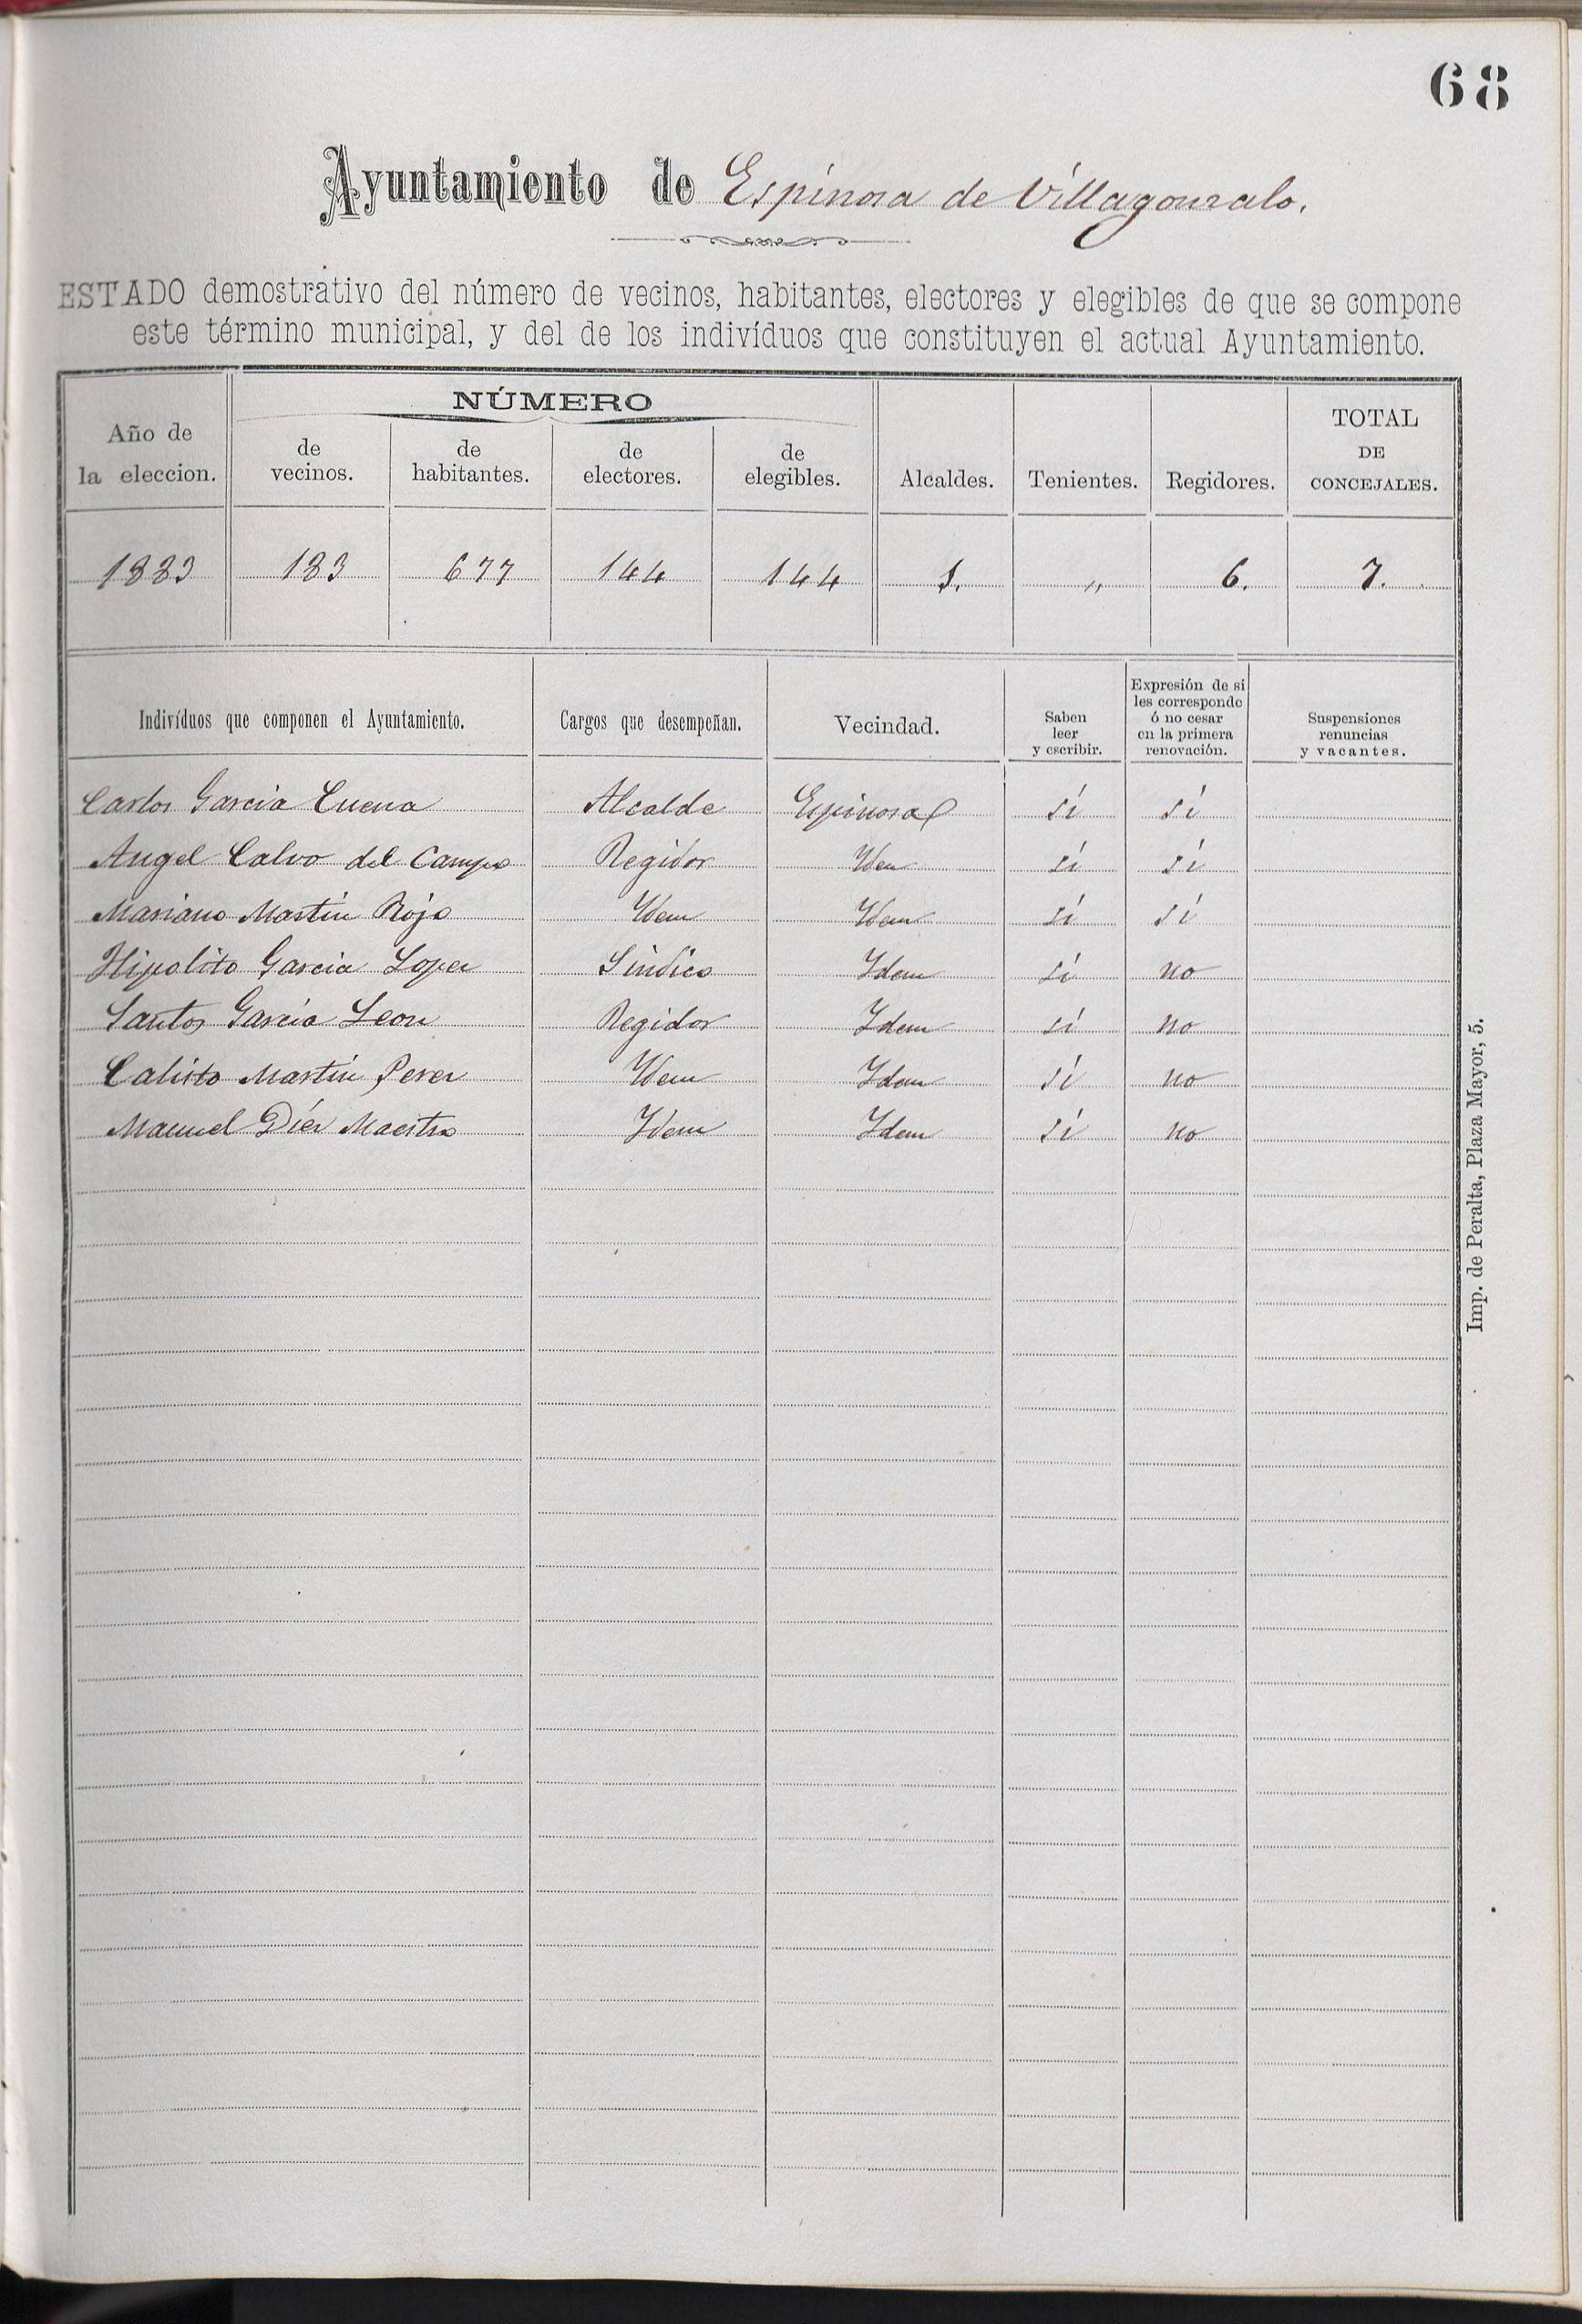 68
Ayuntamiento de Espinosa de Villagonzalo.
ESTADO demostrativo del número de vecinos, habitantes, electores y elegibles de que se compone
este término municipal, y del de los indivíduos que constituyen el actual Ayuntamiento.
Año de la eleccion. NÚMERO de vecinos. de habitantes. de electores. de elegibles. Alcaldes. Tenientes. Regidores. TOTAL DE CONCEJALES.
1883 183 677 144 144 1. „ 6. 7.
Indivíduos que componen el Ayuntamiento. Cargos que desempeñan. Vecindad. Saben leer y escribir. Expresión de si les corresponde ó no cesar en la primera renovación. Suspensiones renuncias y vacantes.
Carlos Garcia Cuena Alcalde Espinosa sí sí
Angel Calvo del Campo Regidor Idem sí sí
Mariano Martin Rojo Idem Idem sí sí
Hipolito Garcia Lopez Sindico Idem sí no
Santos García Leon Regidor Idem sí no
Calisto Martin Perez Idem Idem sí no
Manuel Díez Maestro Idem Idem sí no
Imp. de Peralta, Plaza Mayor, 5.